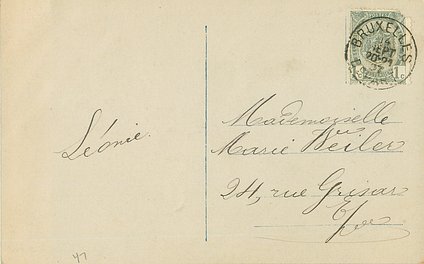 BRUXELLES
SEPT
20-21
1 c
Léonie.
Mademoiselle
Marie Weiler
24, rue Grisar
E/v
47